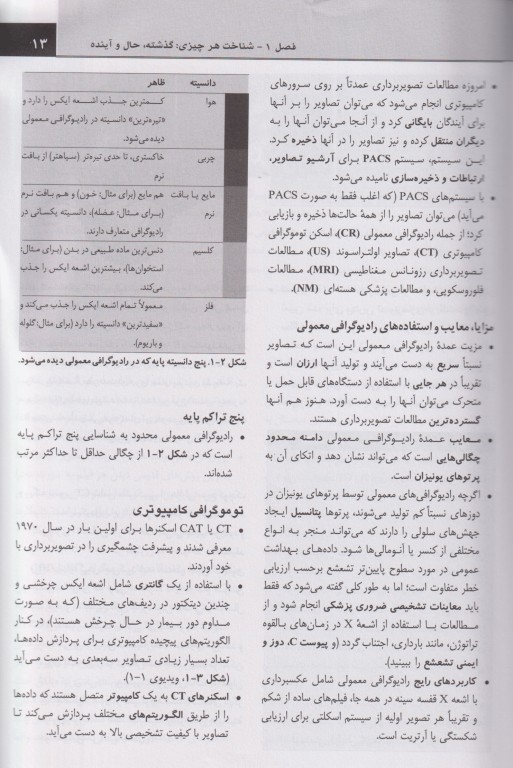 فصل ۱ - شناخت هر چیزی: گذشته، حال و آینده ۱۳
• امروزه مطالعات تصویربرداری عمدتاً بر روی سرورهای
کامپیوتری انجام می‌شود که می‌توان تصاویر را بر آنها
برای آیندگان بایگانی کرد و از آنجا می‌توان آنها را به
دیگران منتقل کرده و نیز تصاویر را در آنها ذخیره کرد.
این سیستم، سیستم PACS برای آرشیو تصاویر،
ارتباطات و ذخیره‌سازی نامیده می‌شود.
• با سیستم‌های PACS (که اغلب فقط به صورت PACS
می‌آید) می‌توان تصاویر را از همهٔ حالت‌ها ذخیره و بازیابی
کرد؛ از جمله رادیوگرافی معمولی (CR)، اسکن توموگرافی
کامپیوتری (CT)، تصاویر اولتراسوند (US)، مطالعات
تصویربرداری رزونانس مغناطیسی (MRI)، مطالعات
فلوروسکوپی، و مطالعات پزشکی هسته‌ای (NM).
مزایا، معایب و استفاده‌های رادیوگرافی معمولی
• مزیت عمدهٔ رادیوگرافی معمولی این است که تصاویر
نسبتاً سریع به دست می‌آیند و تولید آنها ارزان است و
تقریباً در هر جایی با استفاده از دستگاه‌های قابل حمل یا
متحرک می‌توان آنها را به دست آورد. هنوز هم آنها
گسترده‌ترین مطالعات تصویربرداری هستند.
• معایب عمدهٔ رادیوگرافی معمولی دامنه محدود
چگالی‌هایی است که می‌تواند نشان دهد و اتکای آن به
پرتوهای یونیزان است.
• اگرچه رادیوگرافی‌های معمولی توسط پرتوهای یونیزان در
دوزهای نسبتاً کم تولید می‌شوند، پرتوها پتانسیل ایجاد
جهش‌های سلولی را دارند که می‌تواند منجر به انواع
مختلفی از کنسر یا آنومالی‌ها شود. داده‌های بهداشت
عمومی در مورد سطوح پایین‌تر تشعشع برحسب ارزیابی
خطر متفاوت است؛ اما به طور کلی گفته می‌شود که فقط
باید معاینات تشخیصی ضروری پزشکی انجام شود و از
مطالعات با استفاده از اشعهٔ X در زمان‌های بالقوه
تراتوژن، مانند بارداری، اجتناب گردد (و پیوست C، دوز و
ایمنی تشعشع را ببینید).
• کاربردهای رایج رادیوگرافی معمولی شامل عکسبرداری
با اشعه X قفسه سینه در همه جا، فیلم‌های ساده از شکم
و تقریباً هر تصویر اولیه از سیستم اسکلتی برای ارزیابی
شکستگی یا آرتریت است.
دانسیته ظاهر
هوا کمترین جذب اشعه ایکس را دارد و
«تیره‌ترین» دانسیته در رادیوگرافی معمولی
دیده می‌شود.
چربی خاکستری، تا حدی تیره‌تر (سیاهتر) از بافت
نرم
مایع یا بافت هم مایع (برای مثال: خون) و هم بافت نرم
نرم (برای مثال: عضله)، دانسیته یکسانی در
رادیوگرافی متعارف دارند.
کلسیم دنس‌ترین ماده طبیعی در بدن (برای مثال:
استخوان‌ها)، بیشترین اشعه ایکس را جذب
می‌کند.
فلز معمولاً تمام اشعه ایکس را جذب می‌کند و
«سفیدترین» دانسیته را دارد (برای مثال: گلوله
و باریوم).
شکل ۲-۱. پنج دانسیته پایه که در رادیوگرافی معمولی دیده می‌شود.
پنج تراکم پایه
• رادیوگرافی معمولی محدود به شناسایی پنج تراکم پایه
است که در شکل ۲-۱ از چگالی حداقل تا حداکثر مرتب
شده‌اند.
توموگرافی کامپیوتری
• CT یا CAT اسکنرها برای اولین بار در سال ۱۹۷۰
معرفی شدند و پیشرفت چشمگیری را در تصویربرداری با
خود آوردند.
• با استفاده از یک گانتری شامل اشعه ایکس چرخشی و
چندین دیتکتور در ردیف‌های مختلف (که به صورت
مداوم دور بیمار در حال چرخش هستند)، در کنار
الگوریتم‌های پیچیده کامپیوتری برای پردازش داده‌ها،
تعداد بسیار زیادی تصاویر سه‌بعدی به دست می‌آید
(شکل ۳-۱، ویدیوی ۱-۱).
• اسکنرهای CT به یک کامپیوتر متصل هستند که داده‌ها
را از طریق الگوریتم‌های مختلف پردازش می‌کند تا
تصاویر با کیفیت تشخیصی بالا به دست می‌آید.